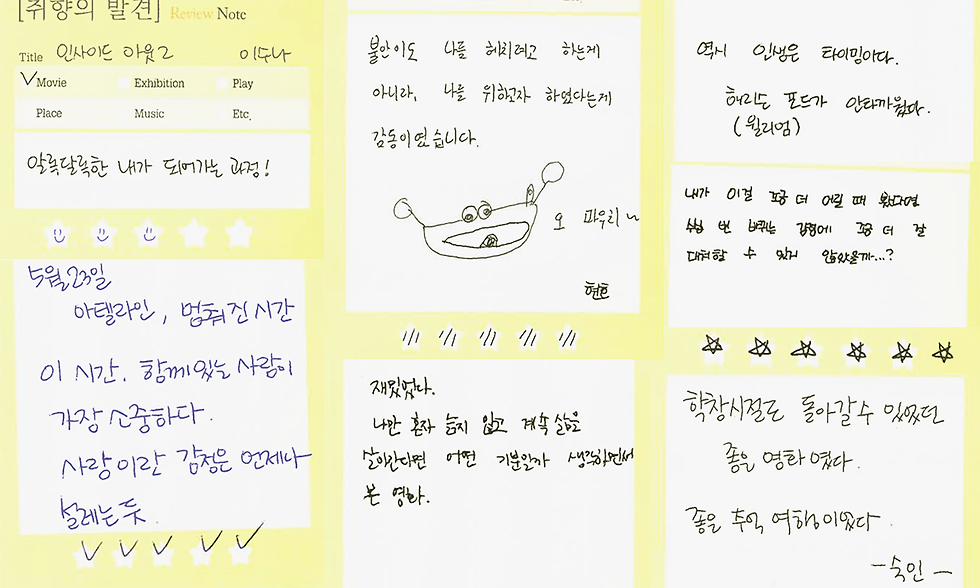 [취향의 발견] Review Note
Title 인사이드 아웃2 이수나
✓Movie Exhibition Play
Place Music Etc.
알록달록한 내가 되어가는 과정!
5월23일
아델라인, 멈춰진 시간
이 시간. 함께있는 사람이
가장 소중하다.
사랑이란 감정은 언제나
설레는 듯.
불안이도 나를 헤치려고 하는게
아니라, 나를 위하고자 하였다는게
감동이였습니다.
오 파우리~
현호
재밌었다.
나만 혼자 늙지 않고 계속 삶을
살아간다면 어떤 기분일까 생각하면서
본 영화.
역시 인생은 타이밍이다.
해리슨 포드가 안타까웠다.
(윌리엄)
내가 이걸 조금 더 어릴 때 봤다면
수십 번 바뀌는 감정에 조금 더 잘
대처할 수 있지 않았을까...?
학창시절로 돌아갈 수 있었던
좋을 영화였다.
좋을 추억 여행이였다
-숙인-